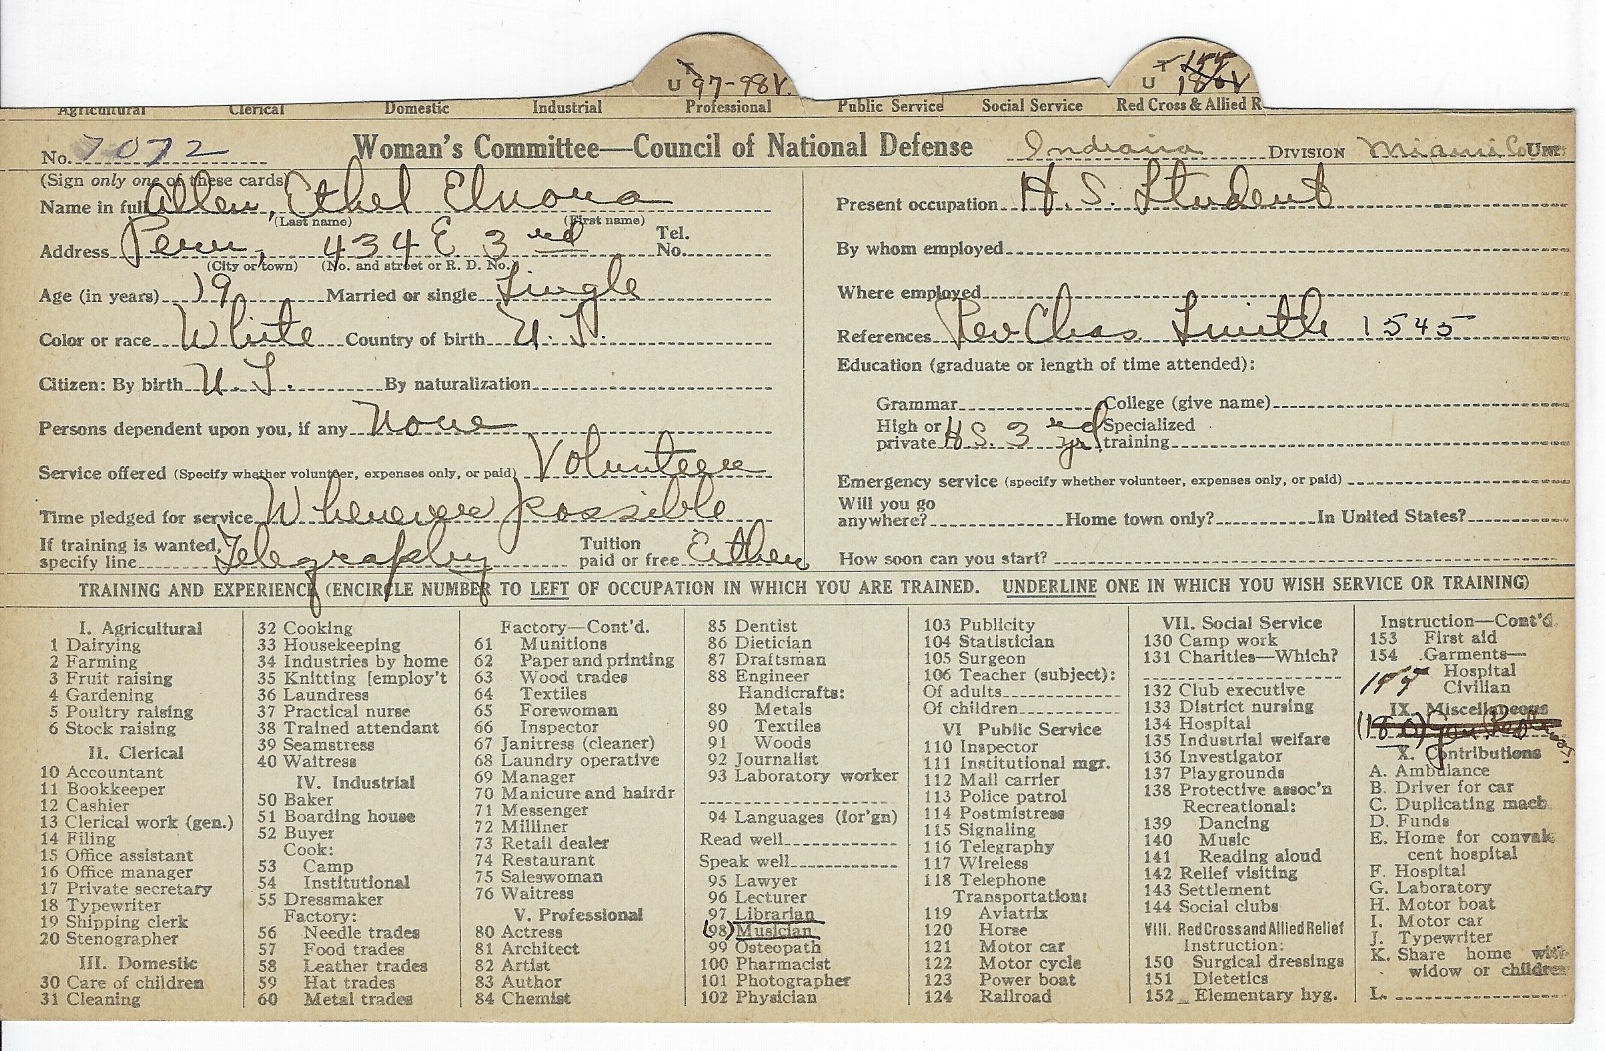 U 97-98V. U T 155 180V
Agricultural Clerical Domestic Industrial Professional Public Service Social Service Red Cross & Allied R
No. 7072 Woman's Committee—Council of National Defense Indiana DIVISION Miami Co Unit
(Sign only one of these cards)
Name in full Allen, Ethel Elnora
(Last name) (First name)
Address Peru, 434 E 3rd Tel. No.
(City or town) (No. and street or R. D. No.)
Age (in years) 19 Married or single Single
Color or race White Country of birth U. S.
Citizen: By birth U. S. By naturalization
Persons dependent upon you, if any None
Service offered (Specify whether volunteer, expenses only, or paid) Volunteer
Time pledged for service Whenever possible
If training is wanted, specify line Telegraphy Tuition paid or free Either
Present occupation H. S. Student
By whom employed
Where employed
References Rev Chas. Smith 1545
Education (graduate or length of time attended):
Grammar College (give name)
High or private H. S. 3rd yr. Specialized training
Emergency service (specify whether volunteer, expenses only, or paid)
Will you go anywhere? Home town only? In United States?
How soon can you start?
TRAINING AND EXPERIENCE (ENCIRCLE NUMBER TO LEFT OF OCCUPATION IN WHICH YOU ARE TRAINED. UNDERLINE ONE IN WHICH YOU WISH SERVICE OR TRAINING)
I. Agricultural
1 Dairying
2 Farming
3 Fruit raising
4 Gardening
5 Poultry raising
6 Stock raising
II. Clerical
10 Accountant
11 Bookkeeper
12 Cashier
13 Clerical work (gen.)
14 Filing
15 Office assistant
16 Office manager
17 Private secretary
18 Typewriter
19 Shipping clerk
20 Stenographer
III. Domestic
30 Care of children
31 Cleaning
32 Cooking
33 Housekeeping
34 Industries by home
35 Knitting [employ't
36 Laundress
37 Practical nurse
38 Trained attendant
39 Seamstress
40 Waitress
IV. Industrial
50 Baker
51 Boarding house
52 Buyer
Cook:
53 Camp
54 Institutional
55 Dressmaker
Factory:
56 Needle trades
57 Food trades
58 Leather trades
59 Hat trades
60 Metal trades
Factory—Cont'd.
61 Munitions
62 Paper and printing
63 Wood trades
64 Textiles
65 Forewoman
66 Inspector
67 Janitress (cleaner)
68 Laundry operative
69 Manager
70 Manicure and hairdr
71 Messenger
72 Milliner
73 Retail dealer
74 Restaurant
75 Saleswoman
76 Waitress
V. Professional
80 Actress
81 Architect
82 Artist
83 Author
84 Chemist
85 Dentist
86 Dietician
87 Draftsman
88 Engineer
Handicrafts:
89 Metals
90 Textiles
91 Woods
92 Journalist
93 Laboratory worker
94 Languages (for'gn)
Read well
Speak well
95 Lawyer
96 Lecturer
97 Librarian
(98) Musician
99 Osteopath
100 Pharmacist
101 Photographer
102 Physician
103 Publicity
104 Statistician
105 Surgeon
106 Teacher (subject):
Of adults
Of children
VI Public Service
110 Inspector
111 Institutional mgr.
112 Mail carrier
113 Police patrol
114 Postmistress
115 Signaling
116 Telegraphy
117 Wireless
118 Telephone
Transportation:
119 Aviatrix
120 Horse
121 Motor car
122 Motor cycle
123 Power boat
124 Railroad
VII. Social Service
130 Camp work
131 Charities—Which?
132 Club executive
133 District nursing
134 Hospital
135 Industrial welfare
136 Investigator
137 Playgrounds
138 Protective assoc'n
Recreational:
139 Dancing
140 Music
141 Reading aloud
142 Relief visiting
143 Settlement
144 Social clubs
VIII. Red Cross and Allied Relief
Instruction:
150 Surgical dressings
151 Dietetics
152 Elementary hyg.
Instruction—Cont'd.
153 First aid
154 Garments—
Hospital
155 Civilian
IX. Miscellaneous
(180)
X. Contributions
A. Ambulance
B. Driver for car
C. Duplicating mach.
D. Funds
E. Home for convales
cent hospital
F. Hospital
G. Laboratory
H. Motor boat
I. Motor car
J. Typewriter
K. Share home with
widow or children
L.